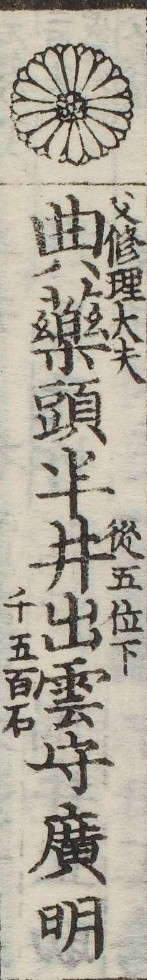 父修理大夫
典藥頭半井出雲守廣明
從五位下
千五百石